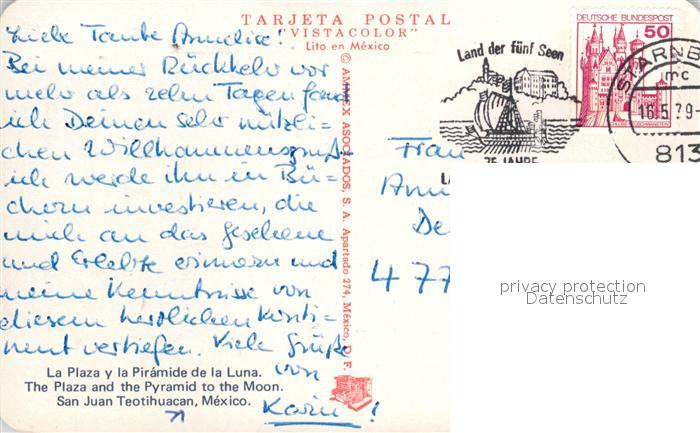 TARJETA POSTAL
"VISTACOLOR"
Lito en México
Liebe Tante Annelise!
Bei meiner Rückkehr vor
mehr als zehn Tagen fand
ich Deinen sehr nützli-
chen Willkommensgruß
ich werde ihn in Bü-
chern investieren, die
mich an das Gesehene
und Erlebte erinnern und
meine Kenntnisse von
diesem herrlichen Konti-
nent vertiefen. Viele Grüße
von
Karin!
La Plaza y la Pirámide de la Luna.
The Plaza and the Pyramid to the Moon.
San Juan Teotihuacan, México.
© AMMEX ASOCIADOS, S. A. Apartado 274, México, D. F.
Land der fünf Seen
75 JAHRE
DEUTSCHE BUNDESPOST
50
STARNB
mc
16.5.79-
813
Frau
Ann
De
477
privacy protection
Datenschutz